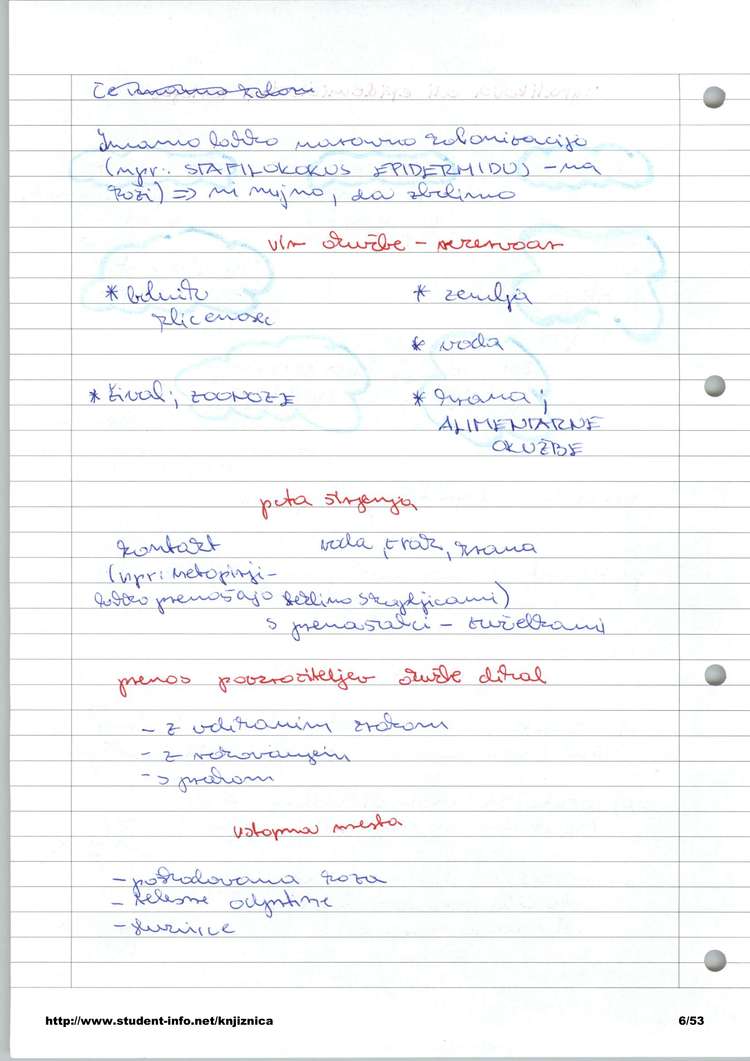 Imamo lahko naravno kolonizacijo
(npr.: STAFILOKOKUS EPIDERMIDUS – na
koži) => ni nujno, da zbolimo
vir okužbe – rezervoar
* bolnik * zemlja
klicenosec
* voda
* žival; ZOONOZE * hrana;
ALIMENTARNE
OKUŽBE
pota širjenja
kontakt voda, zrak, hrana
(npr: netopirji –
lahko prenašajo steklino s kapljicami)
s prenašalci – žuželkami
prenos povzročiteljev okužb dihal
– z vdihanim zrakom
– z rokovanjem
– s prahom
vstopna mesta
– poškodovana koža
– telesne odprtine
– sluznice
http://www.student-info.net/knjiznica 6/53